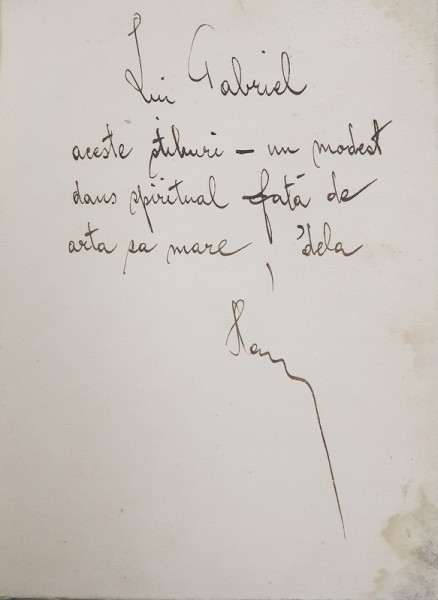 Lui Gabriel
aceste știhuri – un modest
dans spiritual față de
arta sa mare 'dela